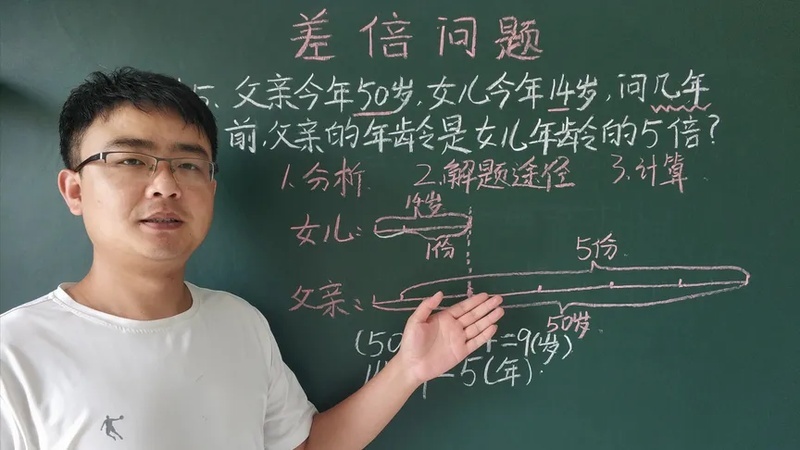 差倍问题
5、父亲今年50岁,女儿今年14岁,问几年
前,父亲的年龄是女儿年龄的5倍?
1.分析 2.解题途径 3.计算
14岁
女儿:
1份
5份
父亲:
50岁
(50 =9(岁)
5(年)